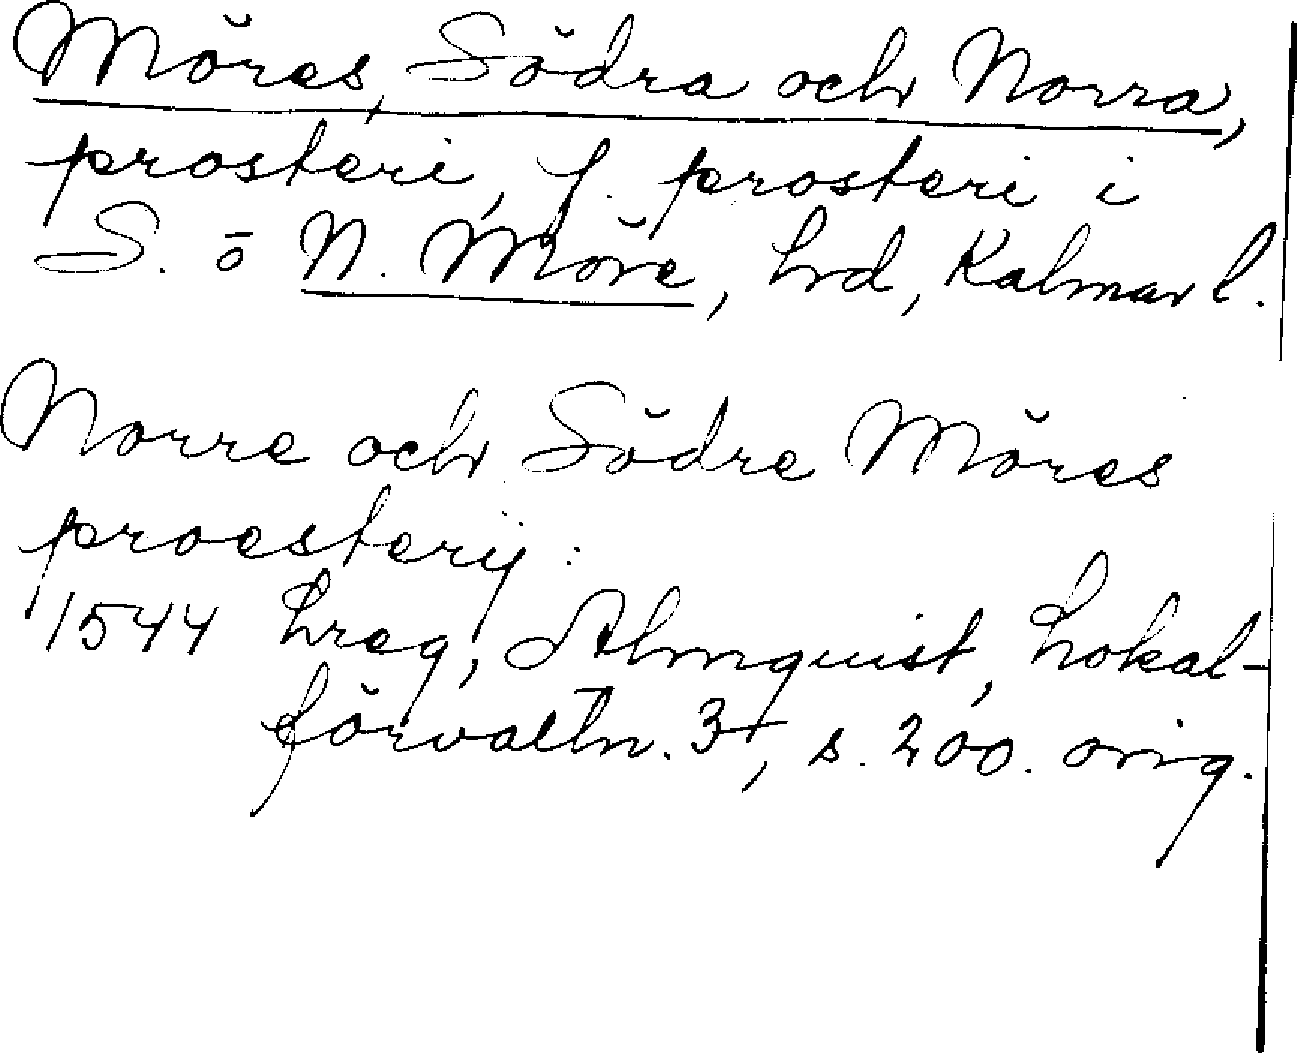 Möres, Södra och Norra,
prosteri, f. prosteri i
S. o N. Möre, hrd, Kalmar l.
Norre och Södre Möres
proesterij:
1544 hreg, Almquist, Lokal-
förvaltn. 3, s. 200. orig.